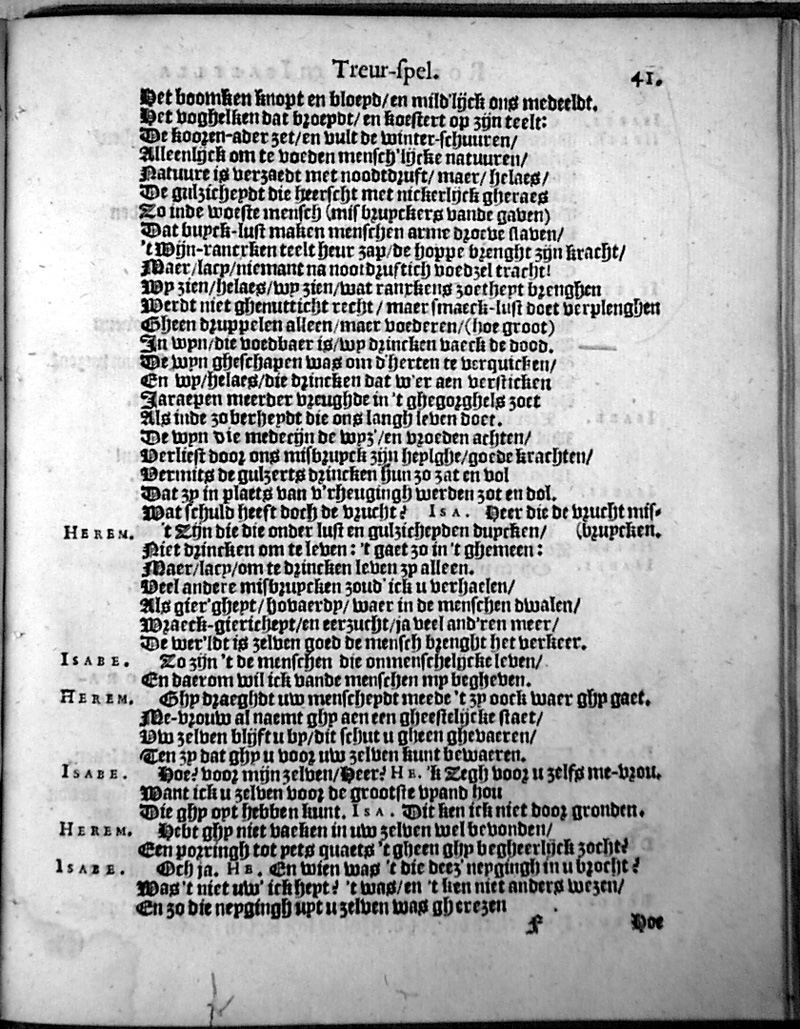 Treur-spel. 41.
Het boomken knopt en bloeyd/en mild'lijck ons medeeldt.
Het voghelken dat broeydt/ en koestert op zijn teelt:
De kooren-ader zet/en vult de winter-schuuren/
Alleenlijck om te voeden mensch'lijcke natuuren/
Natuure is verzaedt met noodtdruft/ maer/ helaes/
De gulzicheydt die heerscht met nickerlijck gheraes
Zo inde woeste mensch (misbruyckers vande gaven)
Dat buyck-lust maken menschen arme droeve slaven/
't Wijn-rancrken teelt heur zap/de hoppe brenght zijn kracht/
Maer/lacy/niemant na nootdruftich voedzel tracht!
Wy zien/helaes/wy zien/wat ranckens zoetheyt brenghen
Werdt niet ghenutticht recht/ maer smaeck-lust doet verplenghen
Gheen druppelen alleen/maer voederen/(hoe groot)
In wyn/die voedbaer is/wy drincken vaeck de dood.
De wyn gheschapen was om d'herten te verquicken/
En wy/helaes/die drincken dat w'er aen versticken
Jaraepen meerder vreughde in 't ghegorghels zoet
Als inde zoberheydt die ons langh leven doet.
De wyn die medecijn de wyz'/en vroeden achten/
Verliest door ons misbruyck zijn heylghe/goede krachten/
Vermits de gulzerts drincken hun zo zat en vol
Dat zy in plaets van v'rheugingh werden zot en dol.
Wat schuld heeft doch de vrucht? Isa. Heer die de vrucht mis-
Herem. 't Zijn die die onder lust en gulzicheyden duycken/ (bruycken.
Niet drincken om te leven: 't gaet zo in 't ghemeen:
Maer/lacy/om te drincken leven zy alleen.
Veel andere misbruycken zoud' ick u verhaelen/
Als gier'gheyt/hovaerdy/waer in de menschen dwalen/
Wraeck-giericheyt/en eerzucht/ja veel and'ren meer/
De wer'ldt is zelven goed de mensch brenght het verkeer.
Isabe. Zo zijn 't de menschen die onmenschelijcke leven/
En daerom wil ick vande menschen my begheven.
Herem. Ghy draeghdt uw menscheydt meede 't zy oock waer ghy gaet.
Me-vrouw al naemt ghy aen een gheestelijcke staet/
Uw zelven blijft u by/dit schut u gheen ghevaeren/
Ten zy dat ghy u voor uw zelven kunt bewaeren.
Isabe. Hoe? voor mijn zelven/Heer? He. 'k Zegh voor u zelfs me-vrou.
Want ick u zelven voor de grootste vyand hou
Die ghy opt hebben kunt. Isa. Dit ken ick niet door gronden.
Herem. Hebt ghy niet vaeken in uw zelven wel bevonden/
Een porringh tot yets quaets 't gheen ghy begheerlijck zocht?
Isabe. Och ja. He. En wien was 't die deez' neygingh in u brocht?
Was 't niet uw' ickheyt? 't was/en 't ken niet anders wezen/
En zo die neygingh uyt u zelven was gherezen
f Hoe